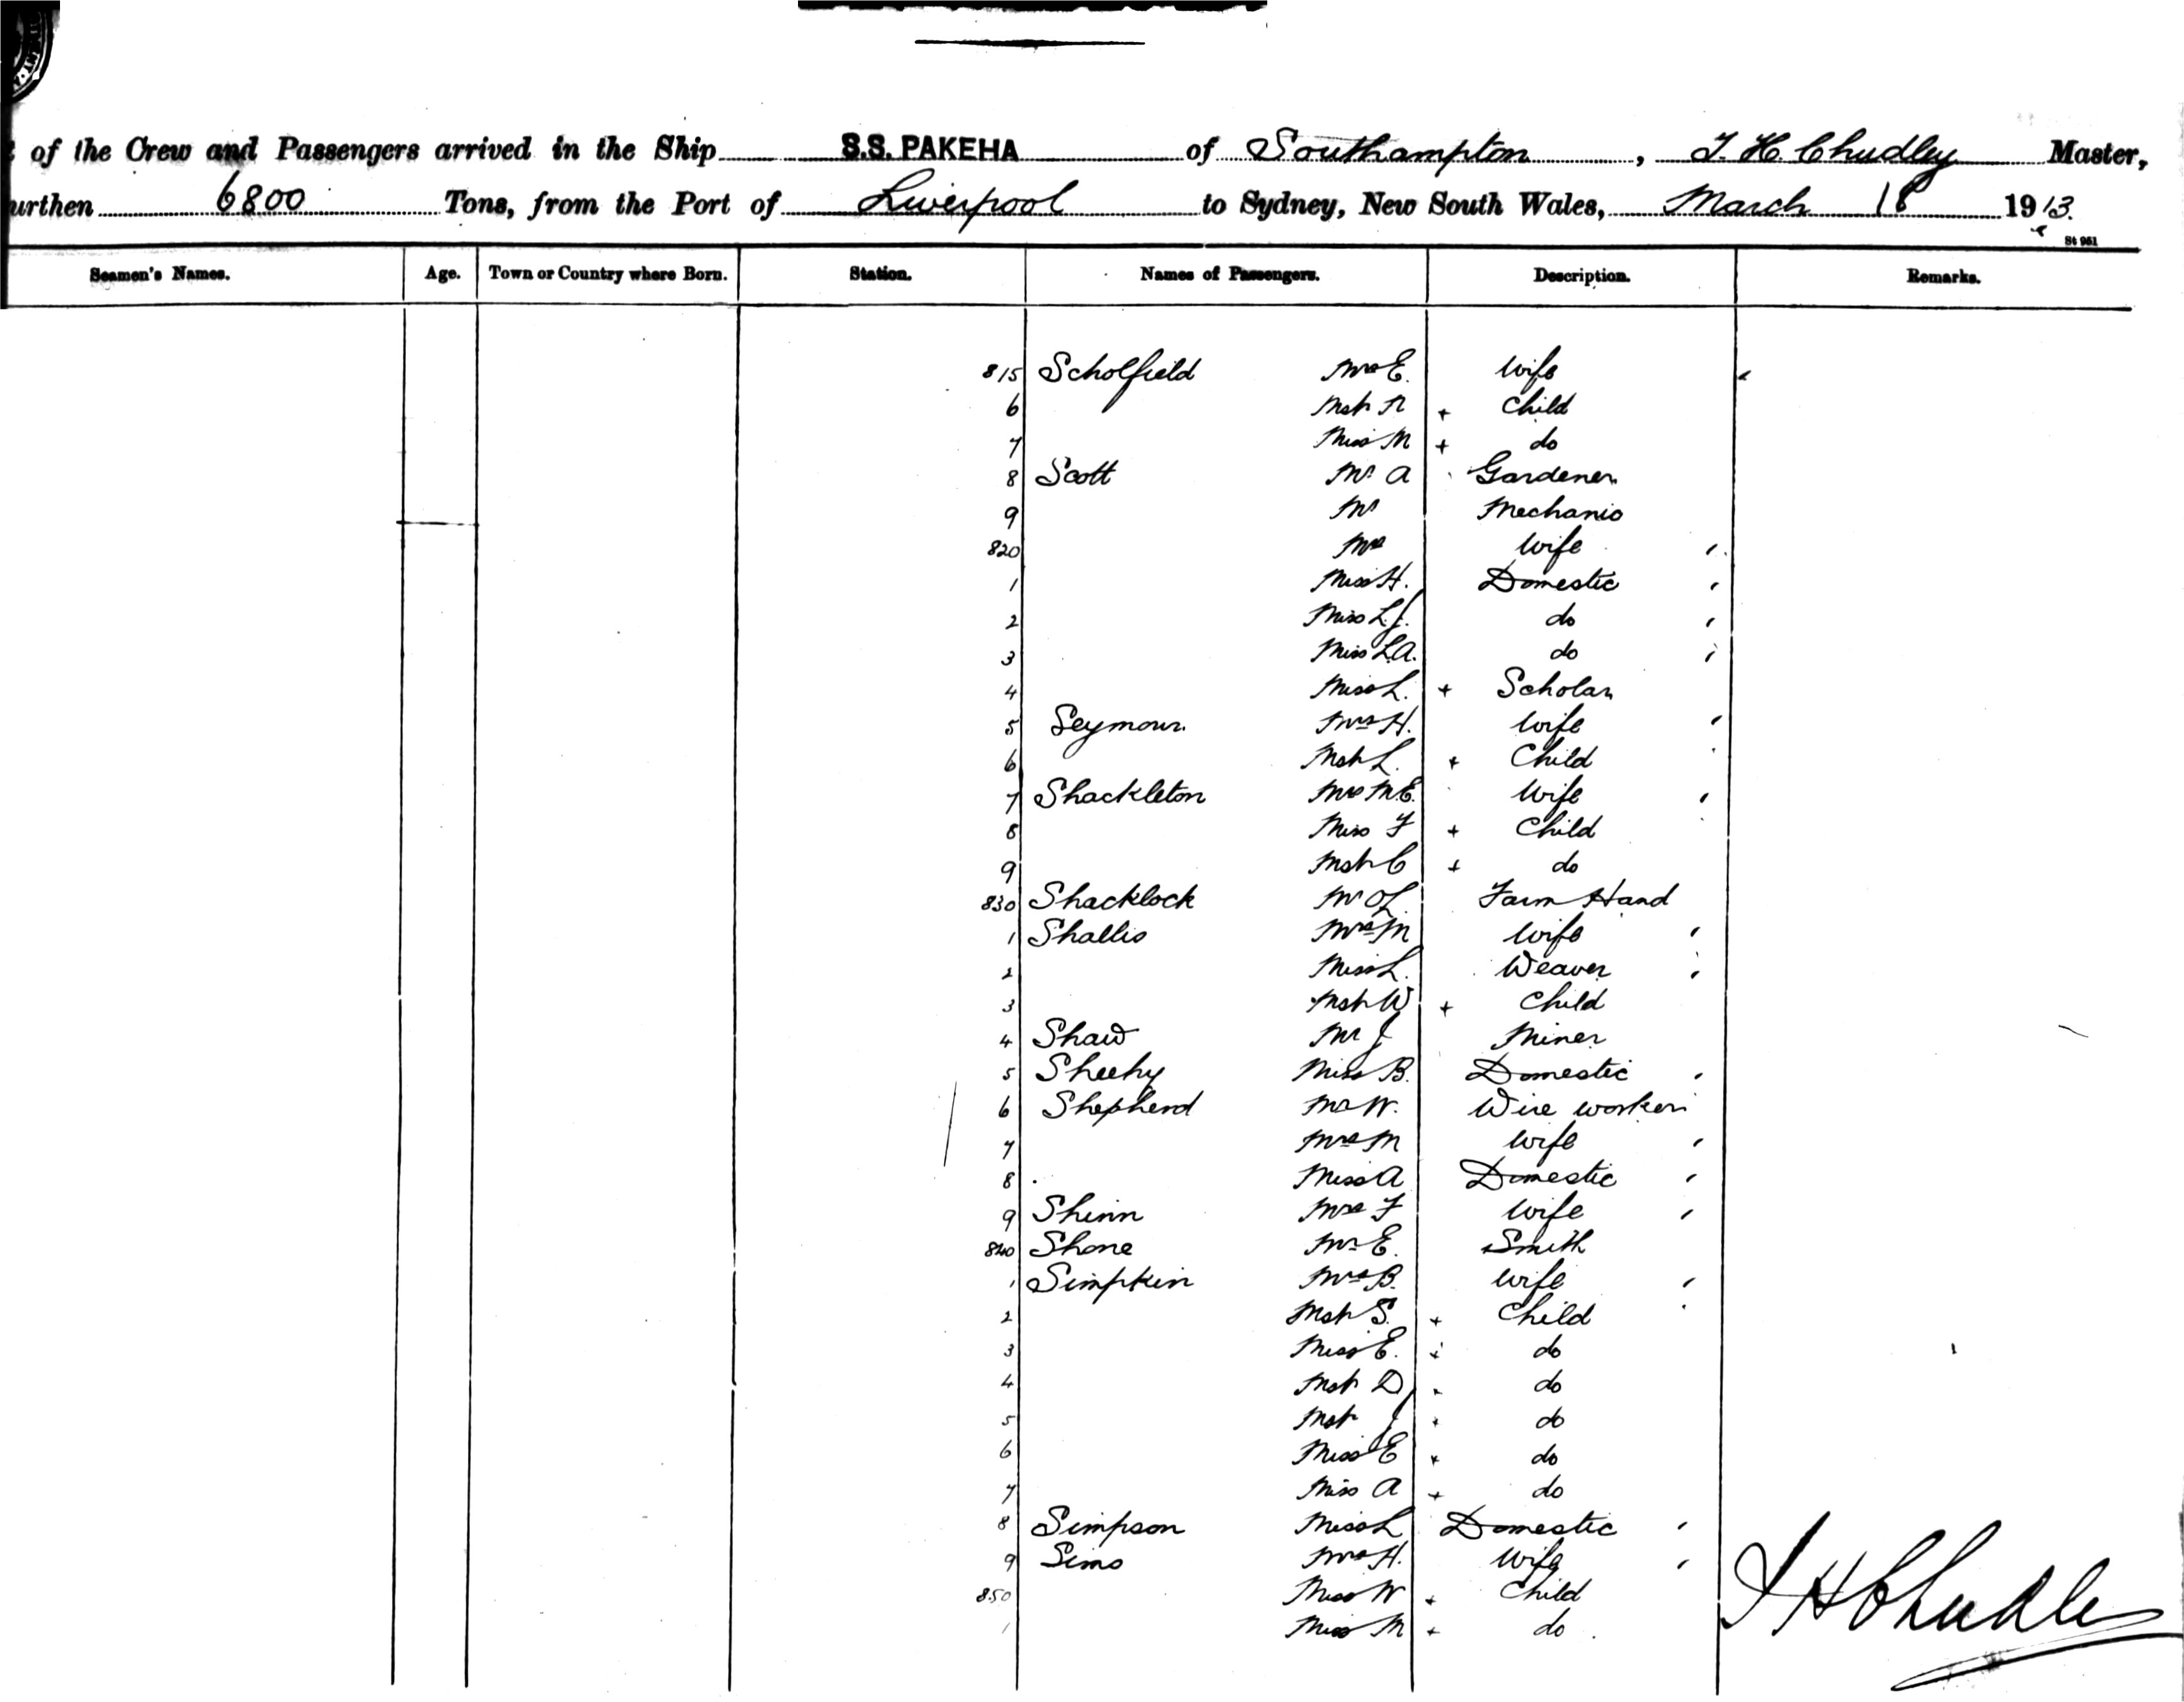 of the Crew and Passengers arrived in the Ship S.S. PAKEHA of Southampton, J. H. Chudley Master,
urthen 6800 Tons, from the Port of Liverpool to Sydney, New South Wales, March 18 1913.
St 951
Seamen's Names. Age. Town or Country where Born. Station. Names of Passengers. Description. Remarks.
815 Scholfield Mrs E. Wife
6 Mstr N + Child
7 Miss M + do
8 Scott Mr A Gardener
9 Mr Mechanic
820 Mrs Wife
1 Miss H. Domestic
2 Miss L.J. do
3 Miss L.A. do
4 Miss L. + Scholar
5 Seymour Mrs H. Wife
6 Mstr L. + Child
7 Shackleton Mrs M.E. Wife
8 Miss F + Child
9 Mstr C + do
830 Shacklock Mr O L Farm Hand
1 Shallis Mrs M Wife
2 Miss L. Weaver
3 Mstr W + Child
4 Shaw Mr J Miner
5 Sheehy Miss B. Domestic
6 Shepherd Mr W. Wire worker
7 Mrs M Wife
8 Miss A Domestic
9 Shinn Mrs F Wife
840 Shone Mr E. Smith
1 Simpkin Mrs B. Wife
2 Mstr S. + Child
3 Miss E. + do
4 Mstr D + do
5 Mstr J + do
6 Miss E + do
7 Miss A + do
8 Simpson Miss L Domestic
9 Sims Mrs H. Wife
850 Miss W + Child
1 Miss M + do
J H Chudley